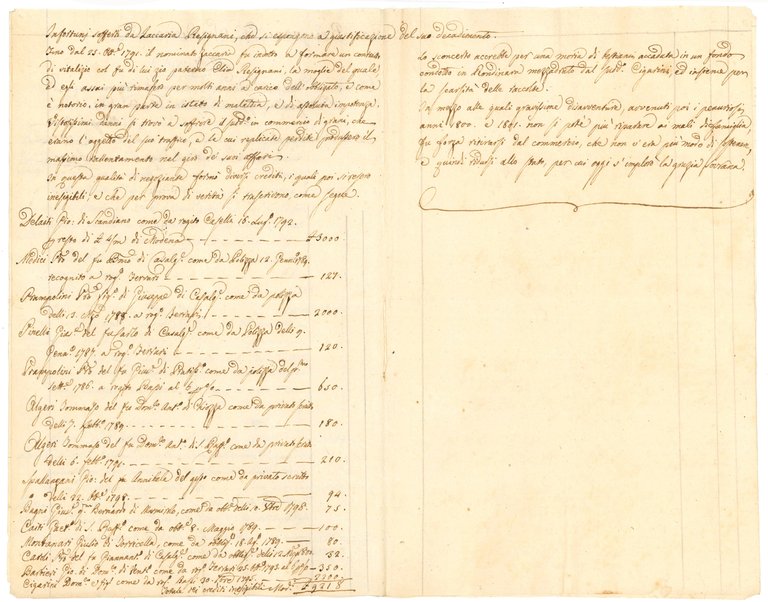 Infortunj sofferti da Zaccaria Resignani, che si espongono a giustificazione del suo decadimento.
Sino dal 25. Ott.e 1791. il nominato Zaccaria fu indotto a formare un contratto
di vitalizio col fu di lui zio paterno Elia Resignani, la moglie del quale
di egli assai più rimaste per molti anni a carico dell'obligato, e come
è notorio, in gran parte in istato di malattia, e di assoluta impotenza.
danni si trovò a soffrire il sud.o in commercio di grani, che
erano l'oggetto del suo traffico, e le cui replicate perdite produssero il
massimo rallentamento nel giro de' suoi affari.
In questa qualità di negoziante formò diversi crediti, i quali poi si resero
inesigibili, e che per prova di verità si trascrivono, come segue
Gio: di Scandiano come da rogito Caselli 16. Lug.o 1792.
resto di di Modena — 3000.
Medici del fu di Casalg.e come da Polizza 12. Genn.o 1789.
recognito a rog.o Ferrari — 127.
Prampolini di Giuseppe di Casalg.e come da polizza
delli 13. 1788. a rog.o Ferrari — 2000
Pinelli del fu Carlo di Casalg.e come da Polizza delli 9.
Gena.o 1787. a rog.o Ferrari — 120.
Prampolini del fu Gius.e di come da polizza del p.mo
Sett.e 1786. a rogito Bassi al 5 p% — 650.
Algeri Tommaso del fu Dom.co Ant.o di come da privato scritto
delli 7. Febb.o 1789. — 180.
Algeri Tommaso del fu Dom.co Ant.o di S. Raff.o come da privato scritto
delli 6. Febb.o 1791. — 210.
Spallanzani Gio: del fu Annibale del Gesso come da privato scritto
delli 22. Ott.e 1798. — 94.
Bagni Gius.e q. Bernardo di come da obb.o delli 10. 1798. — 75.
Caiti di S. Raff.o come da obb.o 8. Maggio 1789. — 100.
Montanari Giulio di Torricella, come da obblig.o 18. 1789. — 80
Caroli del fu Giannant.o di Casalg.e come da obblig.o delli 12 — 32.
Barbieri Gio. di Dom.co di come da rog.o Ferrari 25. Ott.e 1793. al 6 p% — 350.
Cigarini Dom.co e fig.i come da rog.o Bassi 30. 1795. — 2200
Totale dei crediti inesigibili Mod.i £ 9218
Lo sconcerto accrebbe per una moria di bestiami accaduta in un fondo
condotto in mezzadria dal sud.o Cigarini, ed insieme per
la scarsità delle raccolte.
Da mezzo alle quali gravissime disavventure, avvenuti poi i penuriosi
anni 1800. e 1801. non si potè più riparare ai mali di famiglia,
fu forza ritirarsi dal commercio, che non v'era più modo di sostenere,
e quindi ridursi allo stato, per cui oggi s'implora la grazia sovrana.